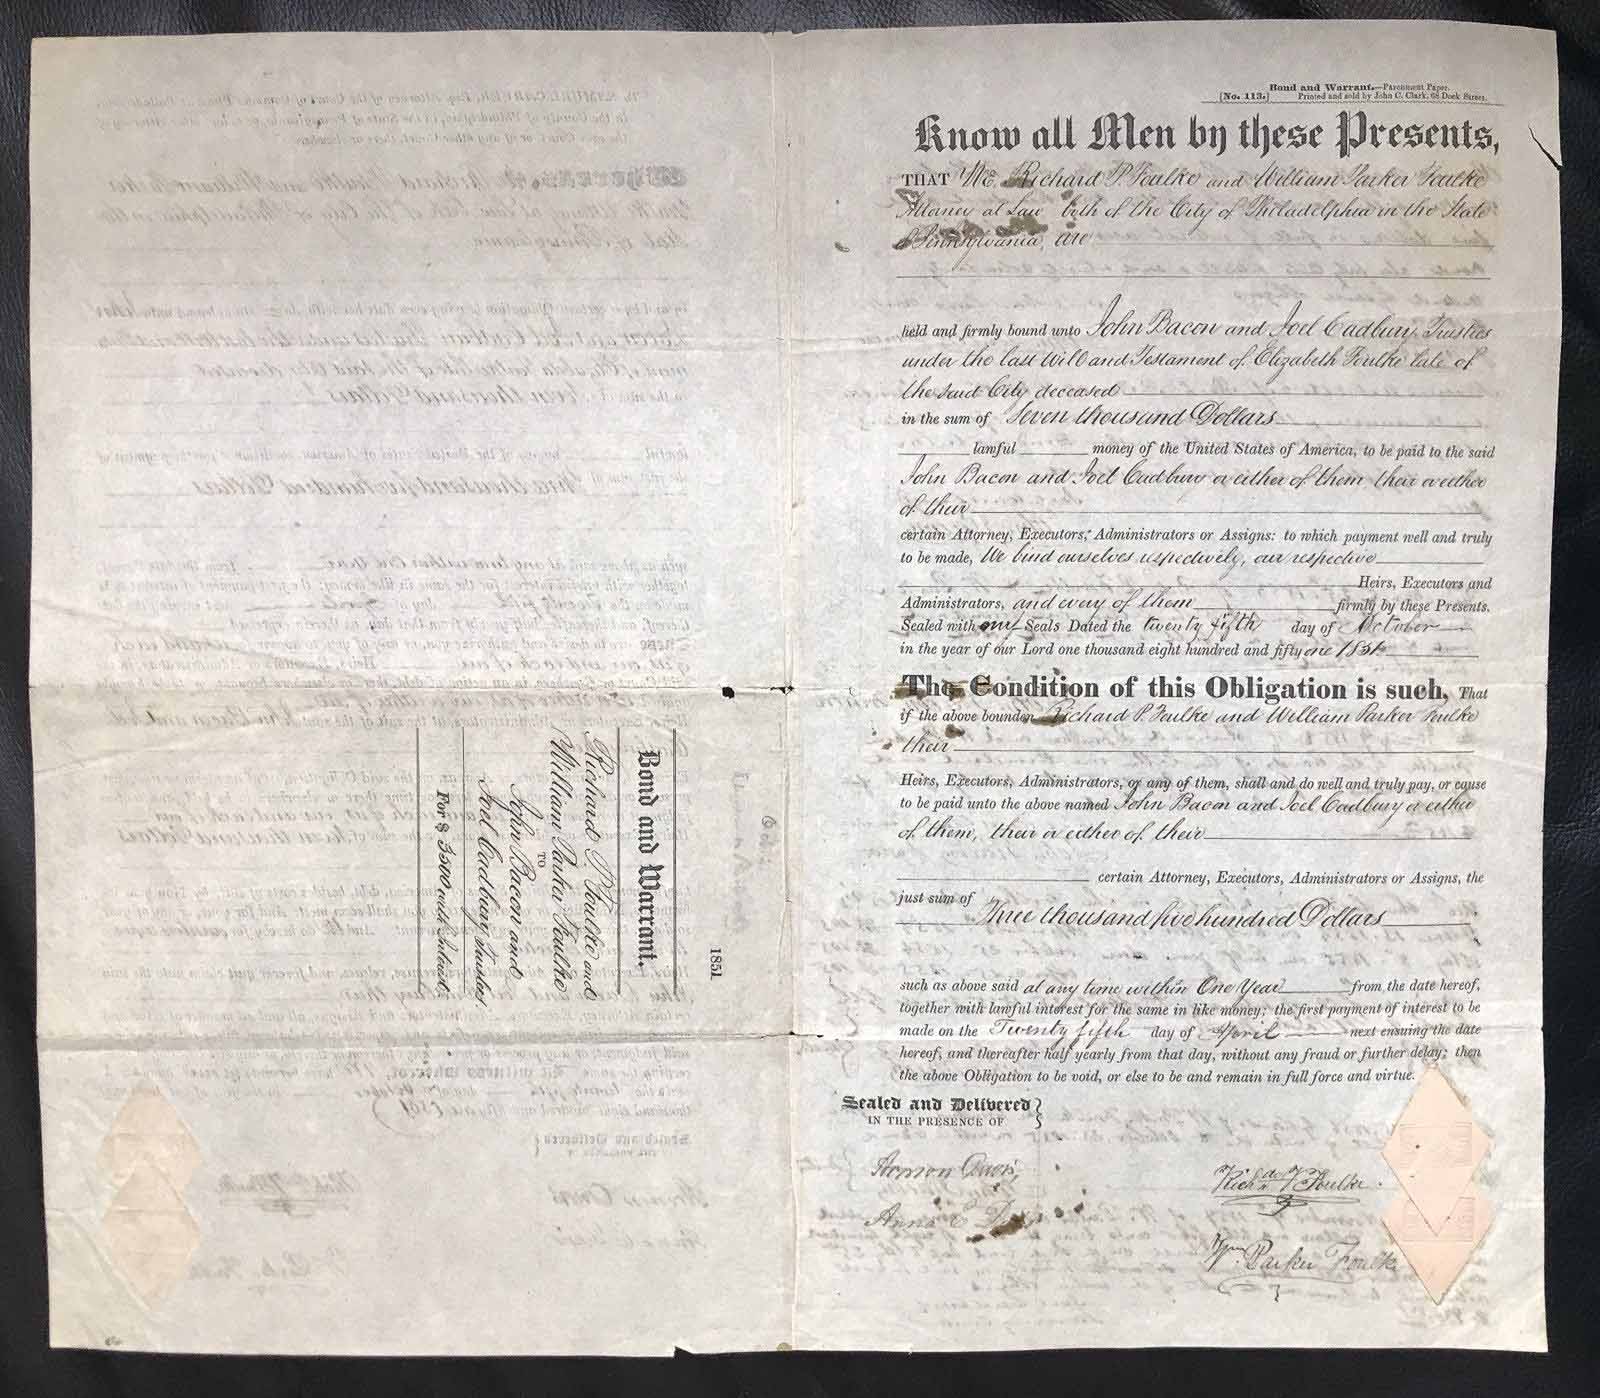 Bond and Warrant.—Parchment Paper.
[No. 113.] Printed and sold by John C. Clark, 68 Dock Street.
Know all Men by these Presents,
THAT We, Richard P. Foulke and William Parker Foulke
Attorney at Law both of the City of Philadelphia in the State
of Pennsylvania, are
held and firmly bound unto John Bacon and Joel Cadbury, Trustees
under the last Will and Testament of Elizabeth Foulke late of
the said City deceased
in the sum of Seven thousand Dollars
lawful money of the United States of America, to be paid to the said
John Bacon and Joel Cadbury or either of them their or either
of their
certain Attorney, Executors, Administrators or Assigns: to which payment well and truly
to be made, We bind ourselves respectively, our respective
Heirs, Executors and
Administrators, and every of them firmly by these Presents.
Sealed with our Seals Dated the twenty fifth day of October
in the year of our Lord one thousand eight hundred and fifty one 1851
The Condition of this Obligation is such, That
if the above bounden Richard P. Foulke and William Parker Foulke
their
Heirs, Executors, Administrators, or any of them, shall and do well and truly pay, or cause
to be paid unto the above named John Bacon and Joel Cadbury or either
of them, their or either of their
certain Attorney, Executors, Administrators or Assigns, the
just sum of Three thousand five hundred Dollars
such as above said at any time within One Year from the date hereof,
together with lawful interest for the same in like money; the first payment of interest to be
made on the Twenty fifth day of April next ensuing the date
hereof, and thereafter half yearly from that day, without any fraud or further delay; then
the above Obligation to be void, or else to be and remain in full force and virtue.
Sealed and Delivered
IN THE PRESENCE OF
Anna E
Richd P Foulke
Wm. Parker Foulke
1851
Bond and Warrant.
Richard P. Foulke and
William Parker Foulke
TO
John Bacon and
Joel Cadbury, Trustees
For $ 3500 with Interest